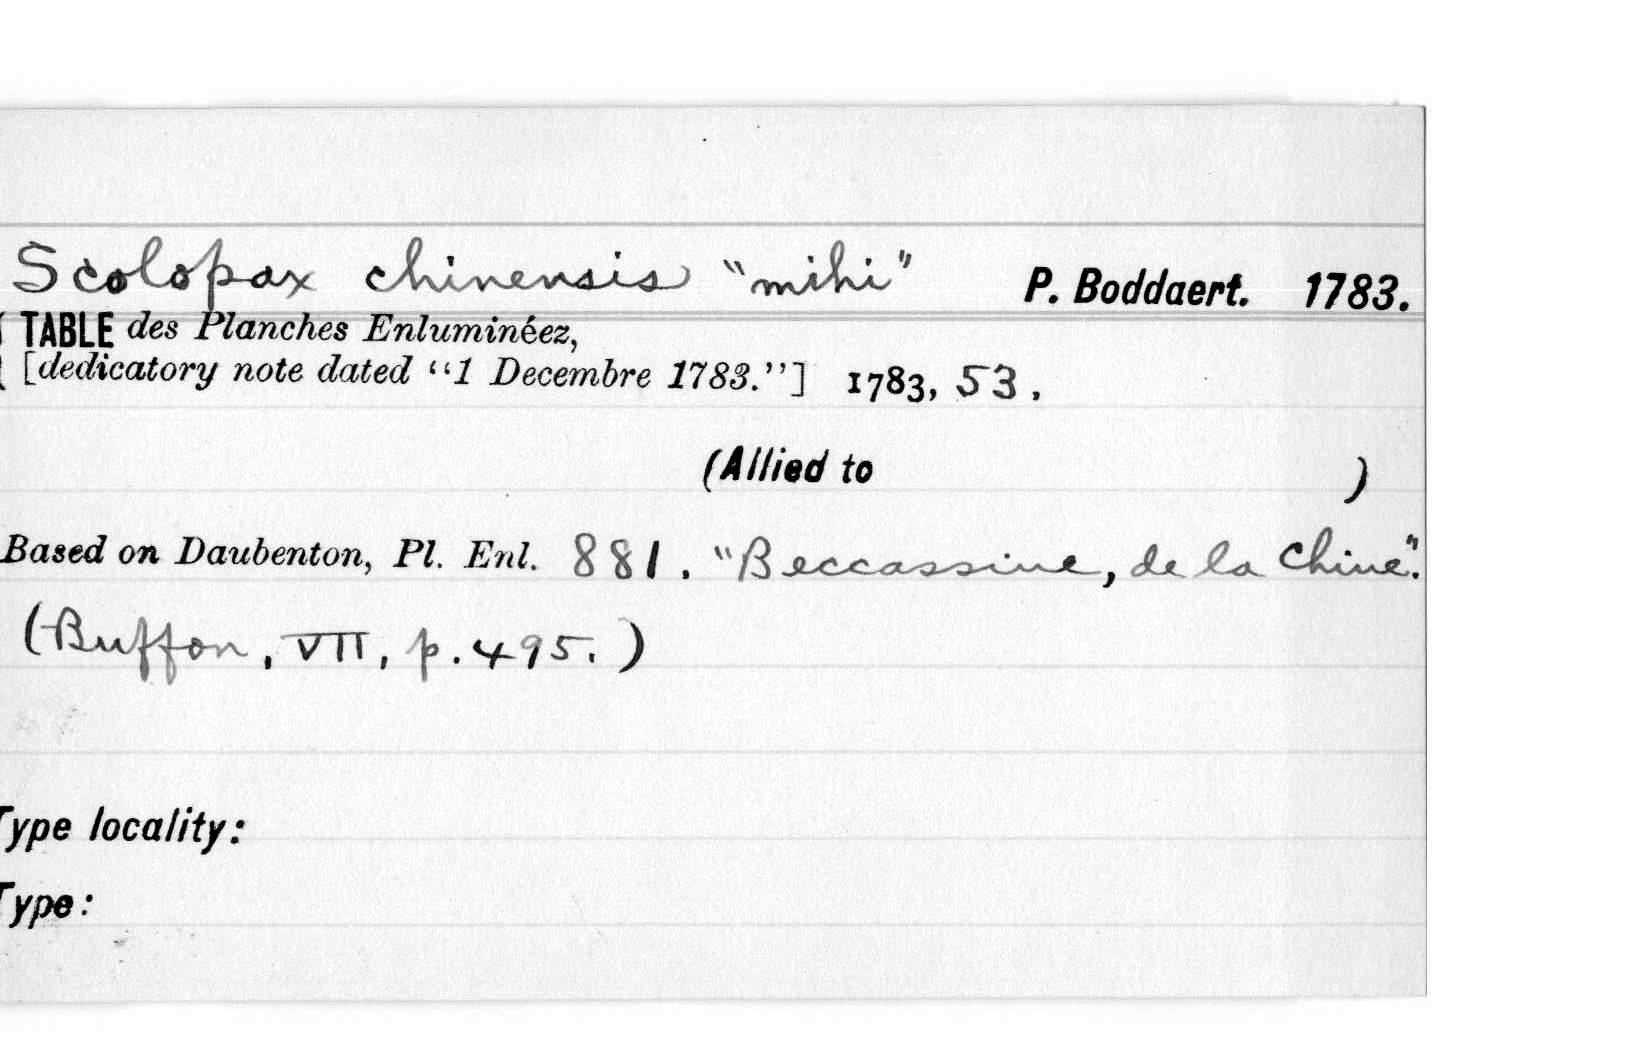 Scolopax chinensis "mihi" P. Boddaert. 1783.
TABLE des Planches Enluminéez,
[dedicatory note dated "1 Decembre 1783."] 1783, 53.
(Allied to )
Based on Daubenton, Pl. Enl. 881. "Beccassine, de la Chine".
(Buffon, VII, p. 495.)
Type locality:
Type: